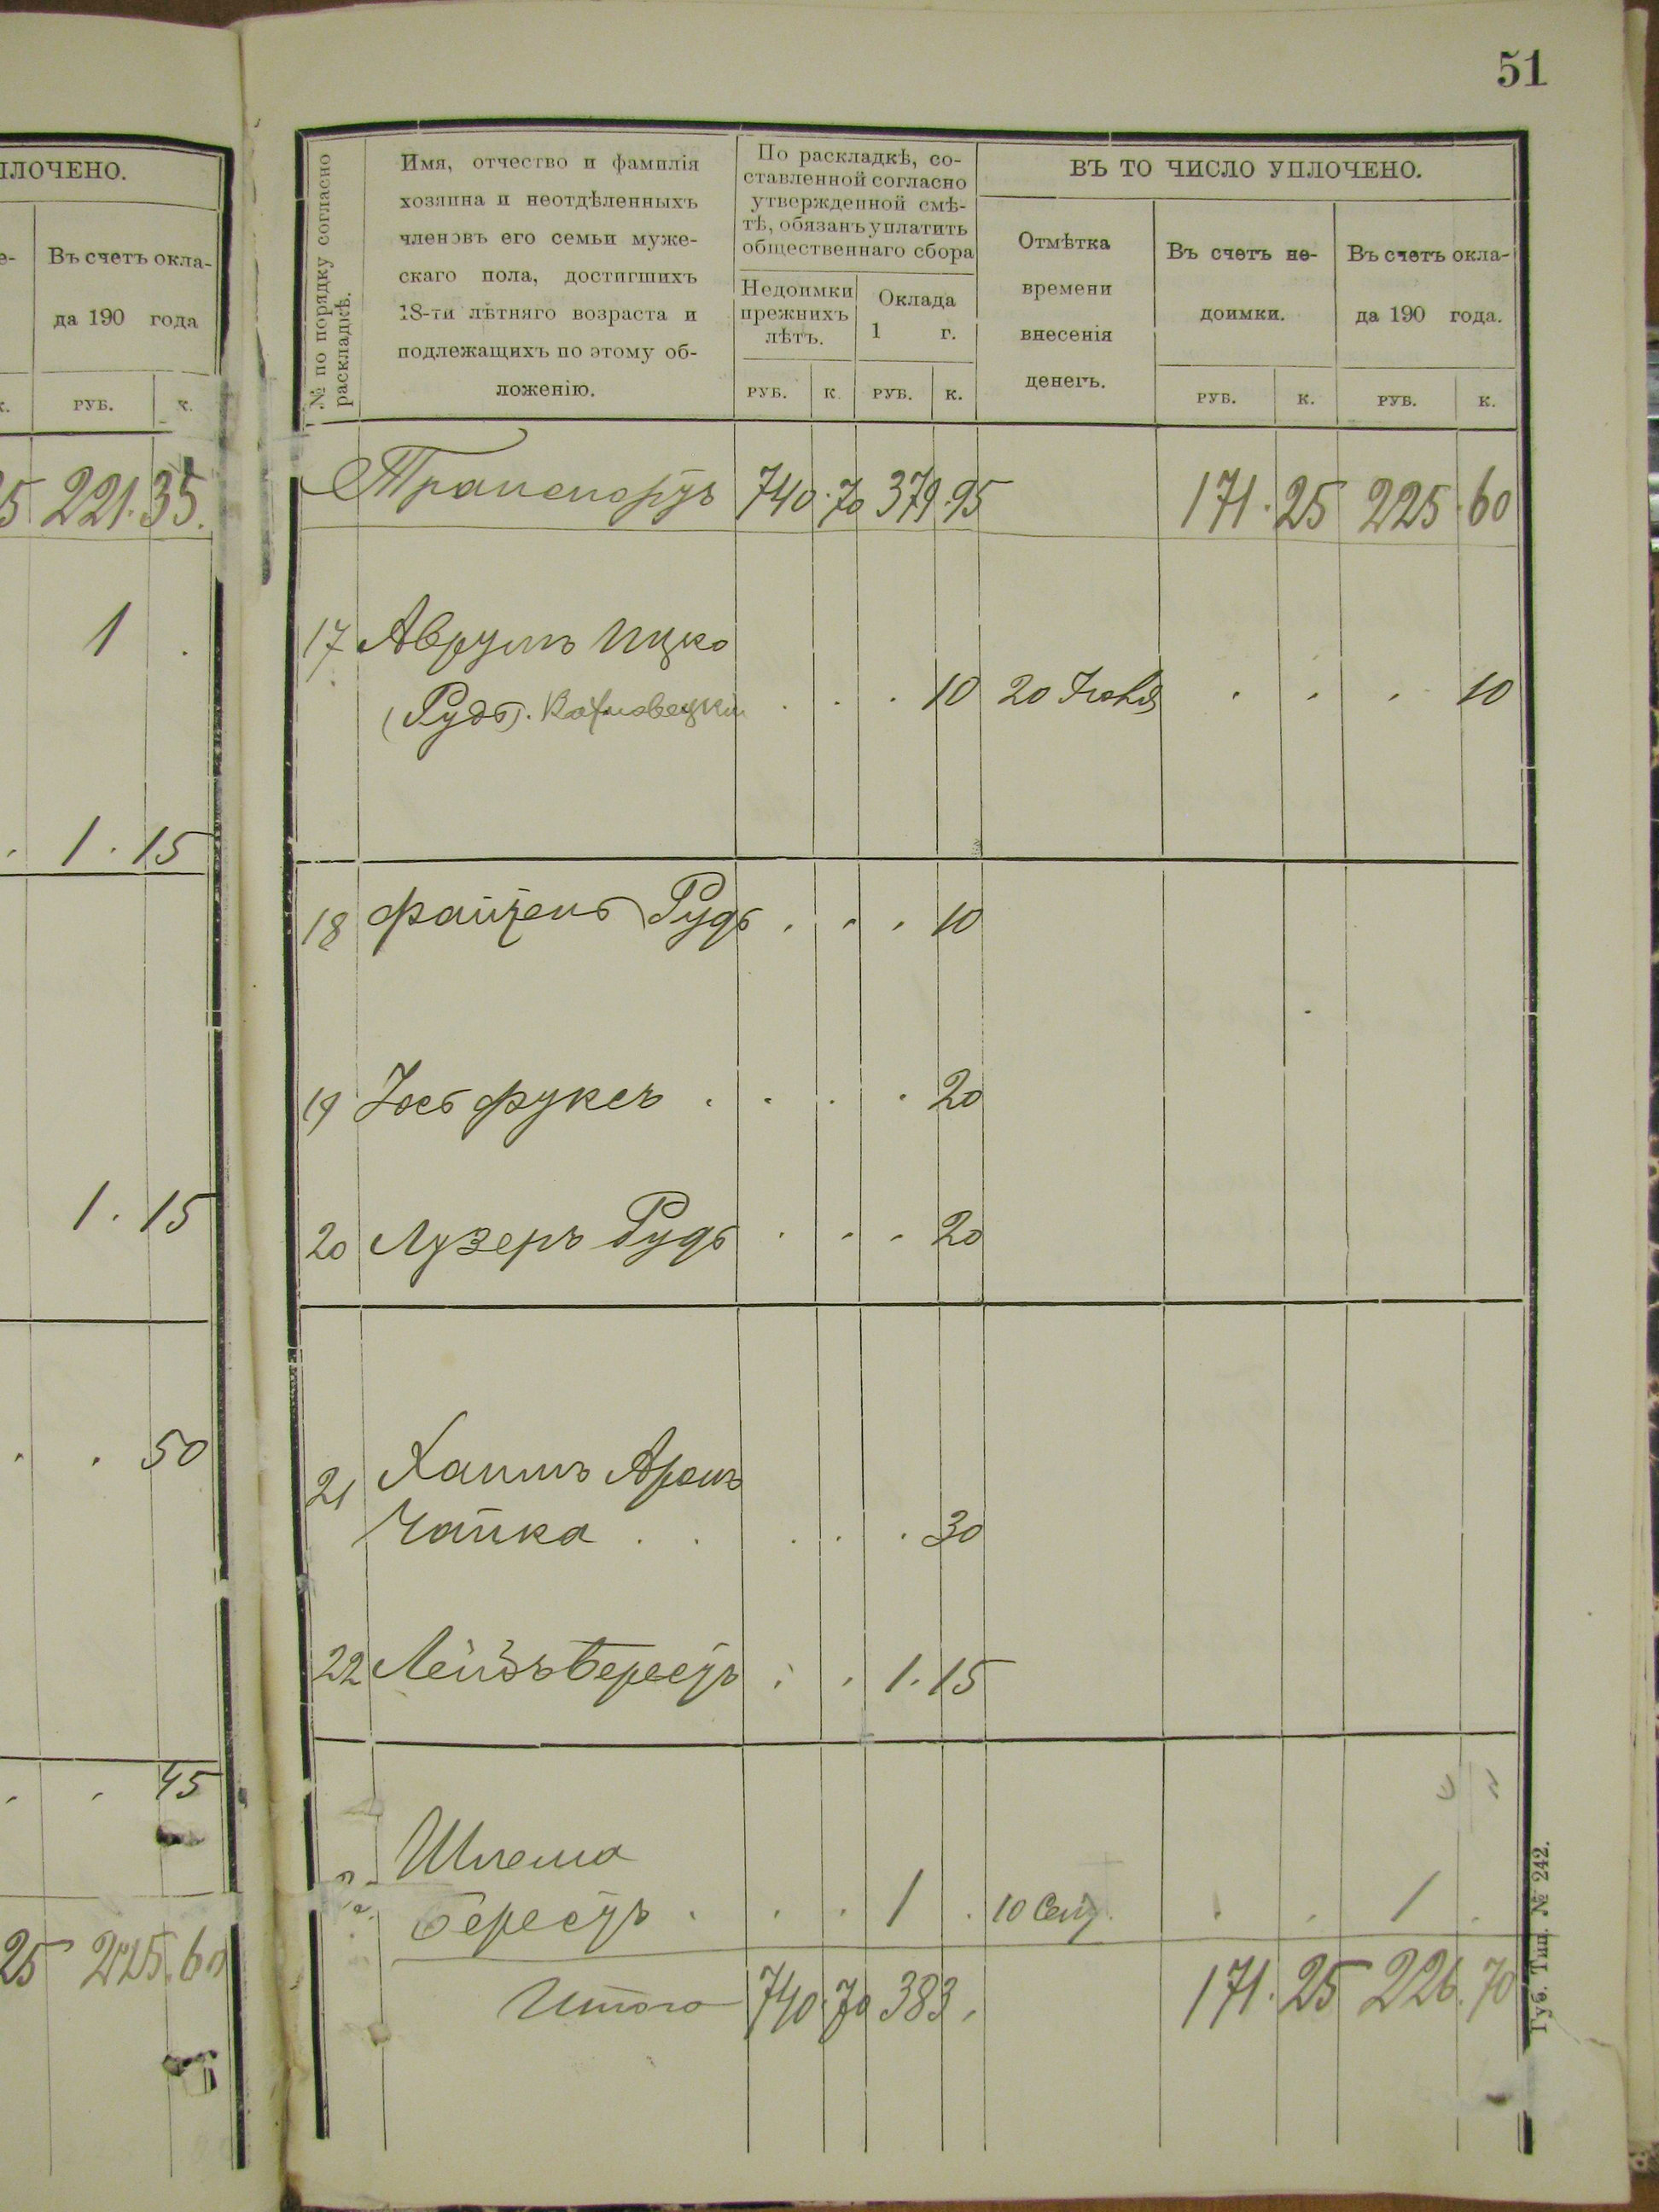 51
ПЛОЧЕНО.
Въ счетъ окла-
да 190 года
РУБ. к.
25 221.35.
1 .
. 1.15
1.15
. . 50
. . 45
25 225.60
№ по порядку согласно
раскладкѣ.
Имя, отчество и фамилія
хозяина и неотдѣленныхъ
членовъ его семьи муже-
скаго пола, достигшихъ
18-ти лѣтняго возраста и
подлежащихъ по этому об-
ложенію.
По раскладкѣ, со-
ставленной согласно
утвержденной смѣ-
тѣ, обязанъ уплатить
общественнаго сбора
Недоимки
прежнихъ
лѣтъ.
РУБ. К.
Оклада
1 г.
РУБ. К.
ВЪ ТО ЧИСЛО УПЛОЧЕНО.
Отмѣтка
времени
внесенія
денегъ.
Въ счетъ не-
доимки.
РУБ. К.
Въ счетъ окла-
да 190 года.
РУБ. К.
Транспортъ 740.70 379.95 171.25 225.60
17 Аврумъ Ицко
(Рудь). . . . 10 20 Іюня . . . 10
18 Файтель Рудь . . . 10
19 Іось Фуксъ . . . . 20
20 Лузеръ Рудь . . . 20
21 Хаимъ Аронъ
Чайка . . . . . 30
22 Лейбъ Берестъ . . 1.15
Шлема
Берестъ . . . 1 . 10 Сент. . . 1 .
Итого 740.70 383. 171.25 226.70
Губ. Тип. № 242.